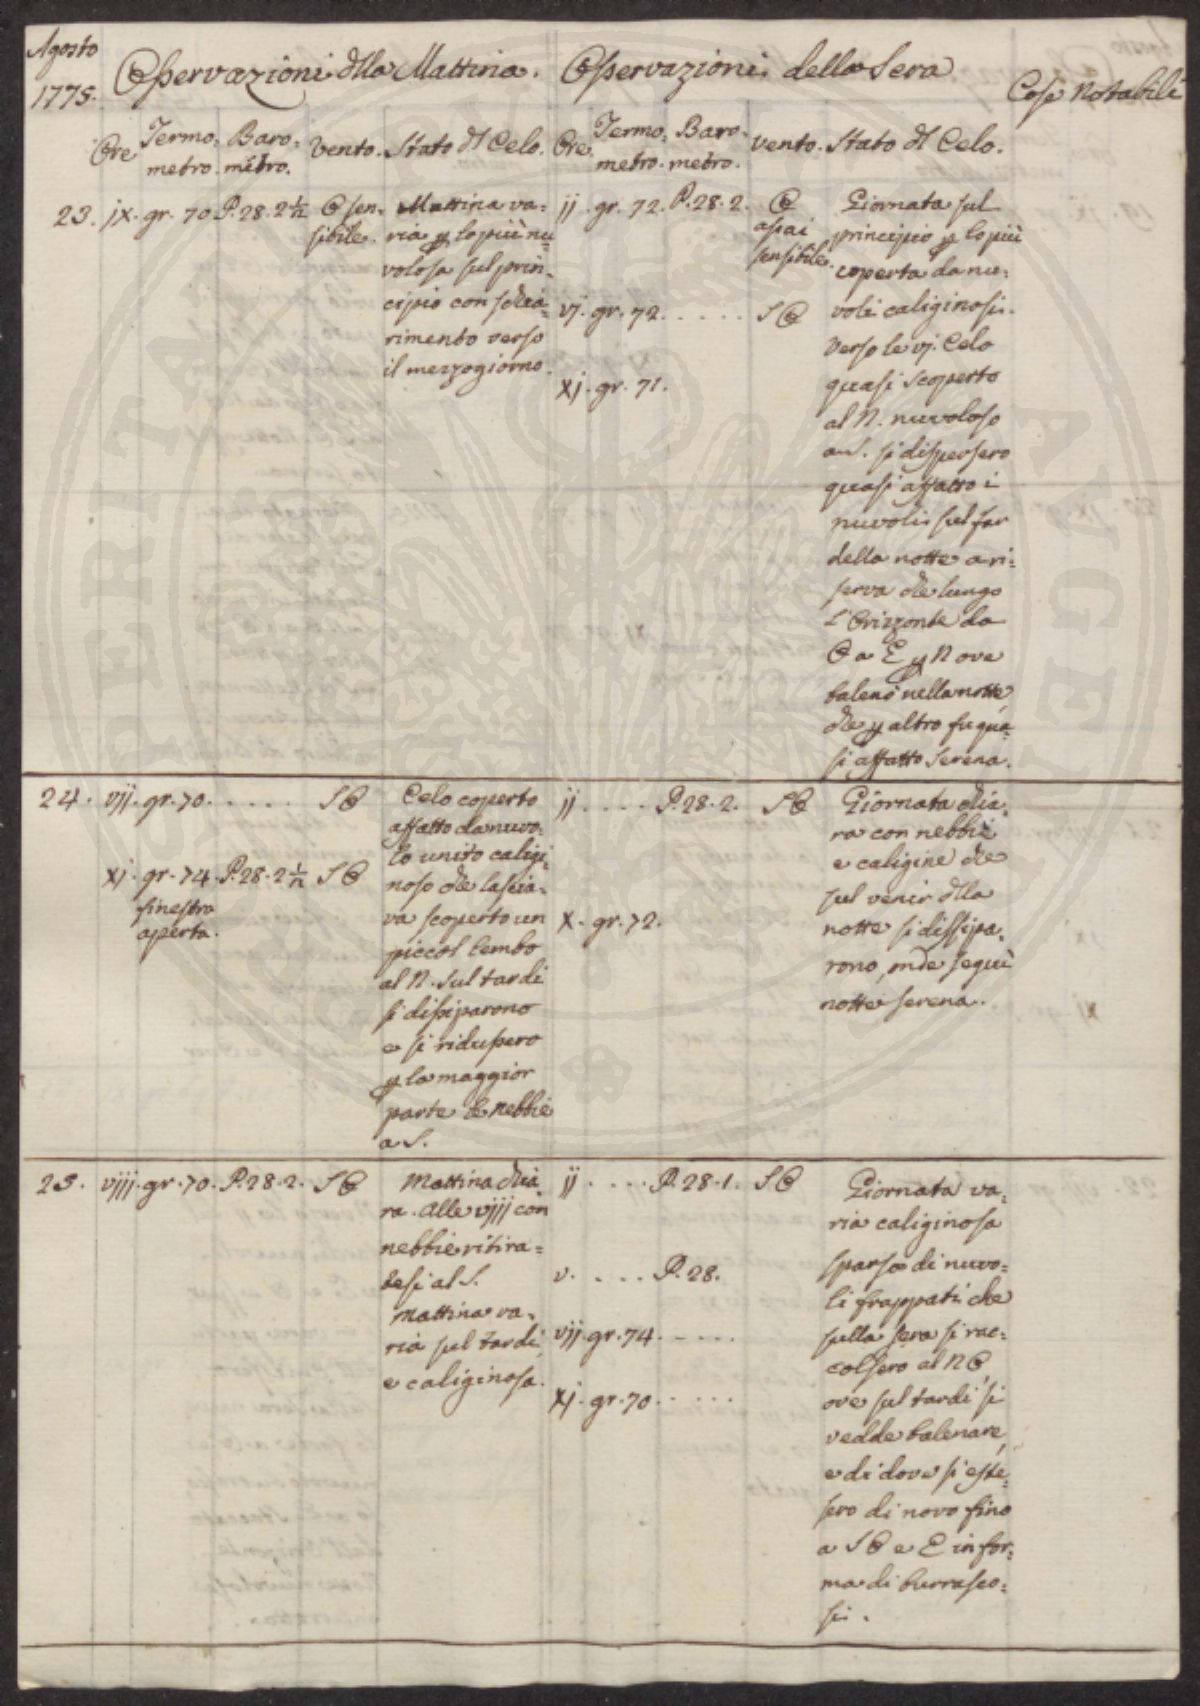 Agosto
1775.
Osservazioni dlla Mattina.
Osservazioni della Sera
Cose Notabili
Ore
Termo=
metro.
Baro=
metro.
Vento.
Stato dl Celo.
Ore
Termo=
metro.
Baro=
metro.
Vento.
Stato dl Celo.
23. jx. gr. 70. P. 28. 2 1/2
O sen=
sibile.
Mattina va=
ria p lo più nu
volosa sul prin=
cipio con schia=
rimento verso
il mezzogiorno.
ij. gr. 72. P. 28. 2.
O
assai
sensibile.
vj. gr. 72. . . . . . S O
xj. gr. 71.
Giornata sul
principio p lo più
coperta da nu=
voli caliginosi.
Verso le vj. Celo
quasi scoperto
al N. nuvoloso
a S. si dispersero
quasi affatto i
nuvoli sul far
della notte a ri=
serva che lungo
l'Orizzonte da
O a E p N ove
balenò nella notte,
che p altro fu qua=
si affatto serena.
24. vij. gr. 70. . . . . . S O
xj. gr. 74. P. 28. 2 1/2 S O
finestra
aperta.
Celo coperto
affatto da nuvo=
lo unito caligi=
noso che lascia=
va scoperto un
piccol lembo
al N. Sul tardi
si dissiparono
e si ridussero
p la maggior
parte le nebbie
a S.
ij . . . . P. 28. 2. S O
x. gr. 72.
Giornata chia=
ra con nebbie
e caligine che
sul venir dlla
notte si dissipa=
rono, onde seguì
notte serena.
25. viij. gr. 70. P. 28. 2. S O
Mattina chia=
ra. Alle viij con
nebbie ritira=
tesi al S.
Mattina va=
ria sul tardi,
e caliginosa.
ij . . . . P. 28. 1. S O
v. . . . P. 28.
vij. gr. 74. . . . .
xj. gr. 70. . . . .
Giornata va=
ria caliginosa
sparsa di nuvo=
li frappati che
sulla sera si rac=
colsero al N O,
ove sul tardi si
vedde balenare,
e di dove si este=
sero di novo fino
a S O e E in for=
ma di burrasco=
si.